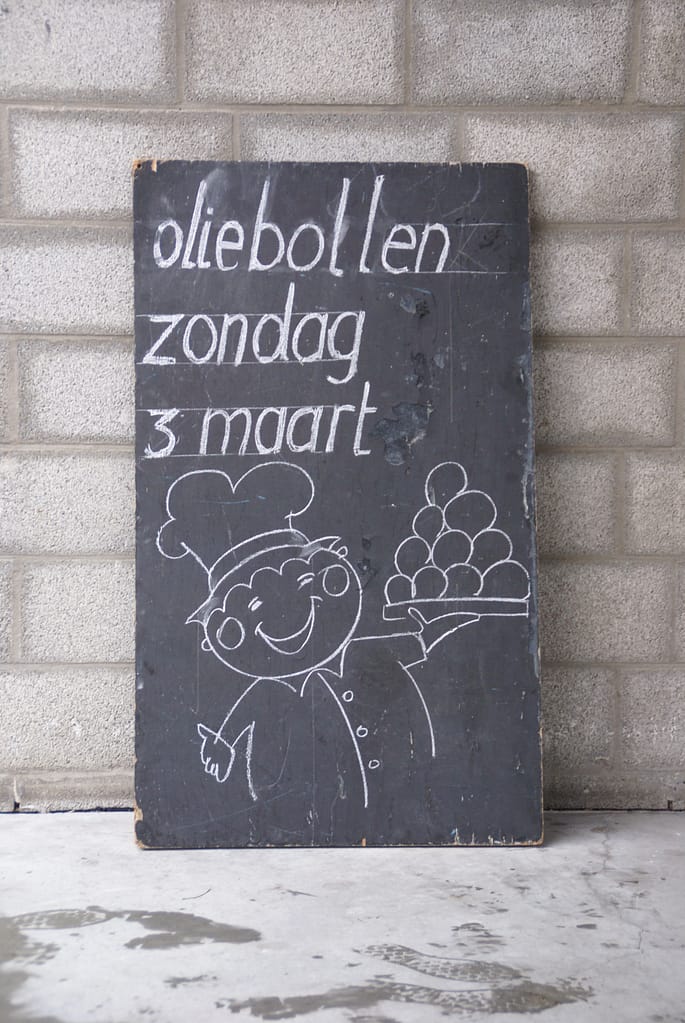 oliebollen
zondag
3 maart